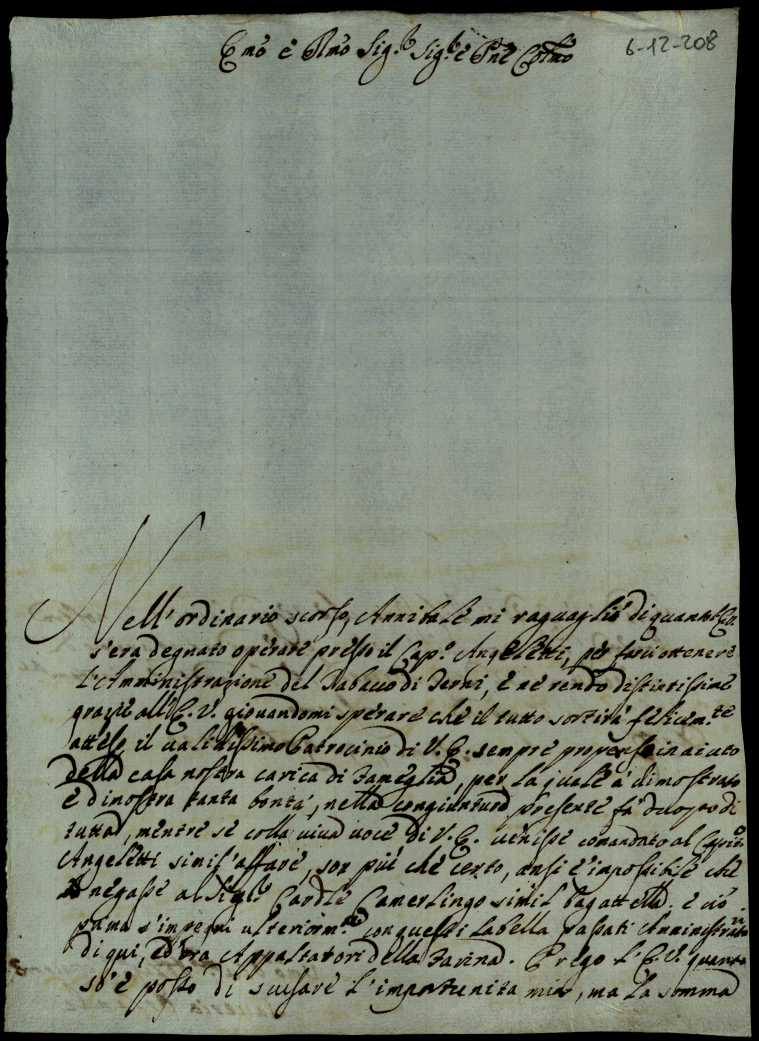 6-12-208
Emo è Rmo Sig.re Sig.re è Pne Colmo
Nell'ordinario scorso, Annibale mi raguagliò di quanto
s'era degnato operare presso il Cap.o Angeletti, per farci ottenere
l'Amministrazione del Tabacco di Terni, è ne rendo distintissime
grazie all'E. V. giovandomi sperare che il tutto sortirà felicem.te
atteso il validissimo Patrocinio di V. E. sempre propenso in aiuto
della casa nostra carica di Fameglia, per la quale à dimostrato
è dimostra tanta bontà, nella congiuntura presente fà duopo di
tutta, mentre se colla viva voce di V. E. venisse comandato al Capit.o
Angeletti simil'affare, son più che certo, ansi è impossibile che
negasse al Sig.re Cardle Camerlingo simil bagattella, è ciò
prima s'impegni ulteriorm.te con questi Labella passati Amministratori
di qui, ed ora Appaltatori della Farina. Prego l'E. V. quanto
sò è posso di scusare l'importunità mia, ma la somma